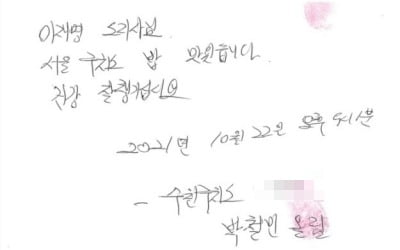 이재명 도지사님
서울 구치소 밥 맛있습니다
건강 잘 챙기십시요
2021년 10월 22일 오후 5시 1분
- 수원구치소
박철민 올림